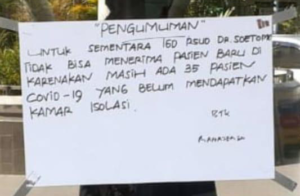 "PENGUMUMAN"
UNTUK SEMENTARA IGD RSUD DR. SOETOMO
TIDAK BISA MENERIMA PASIEN BARU DI
KARENAKAN MASIH ADA 35 PASIEN
COVID-19 YANG BELUM MENDAPATKAN
KAMAR ISOLASI.